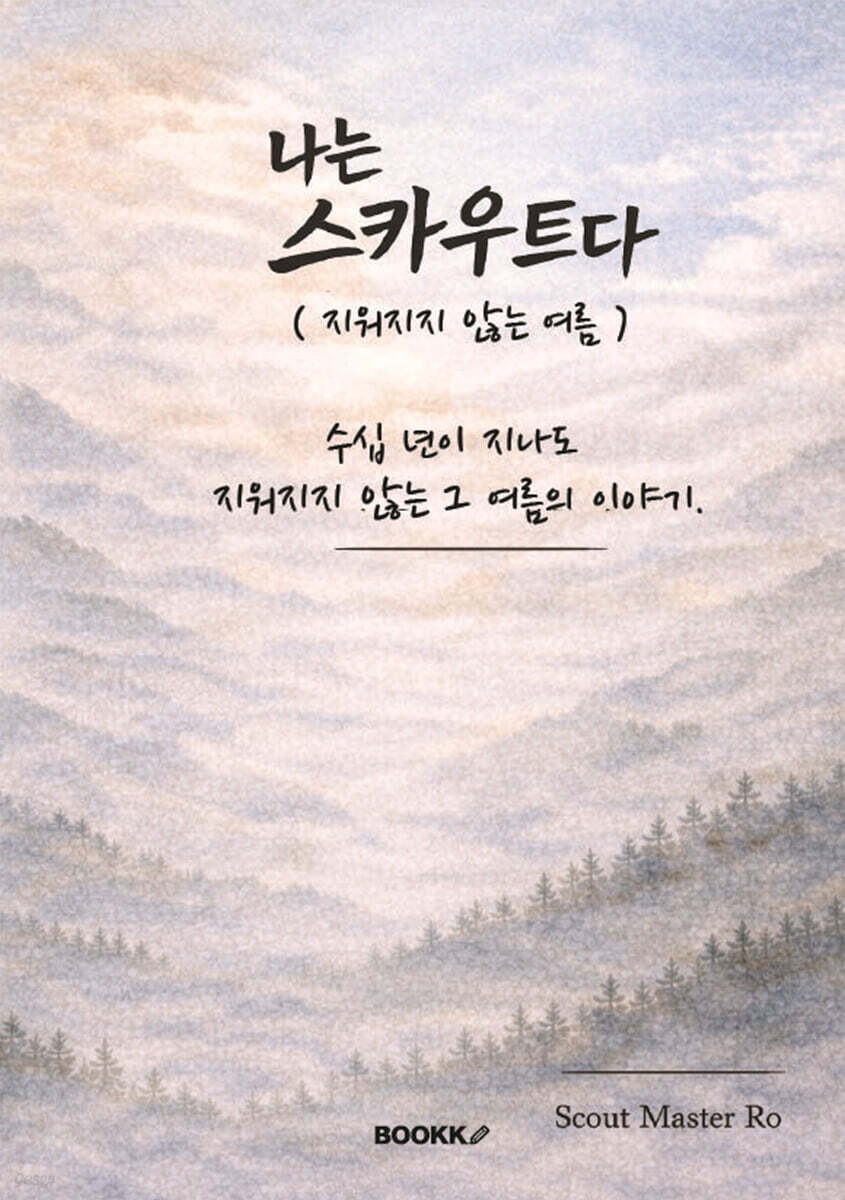 나는
스카우트다
( 지워지지 않는 여름 )
수십 년이 지나도
지워지지 않는 그 여름의 이야기.
Scout Master Ro
BOOKK